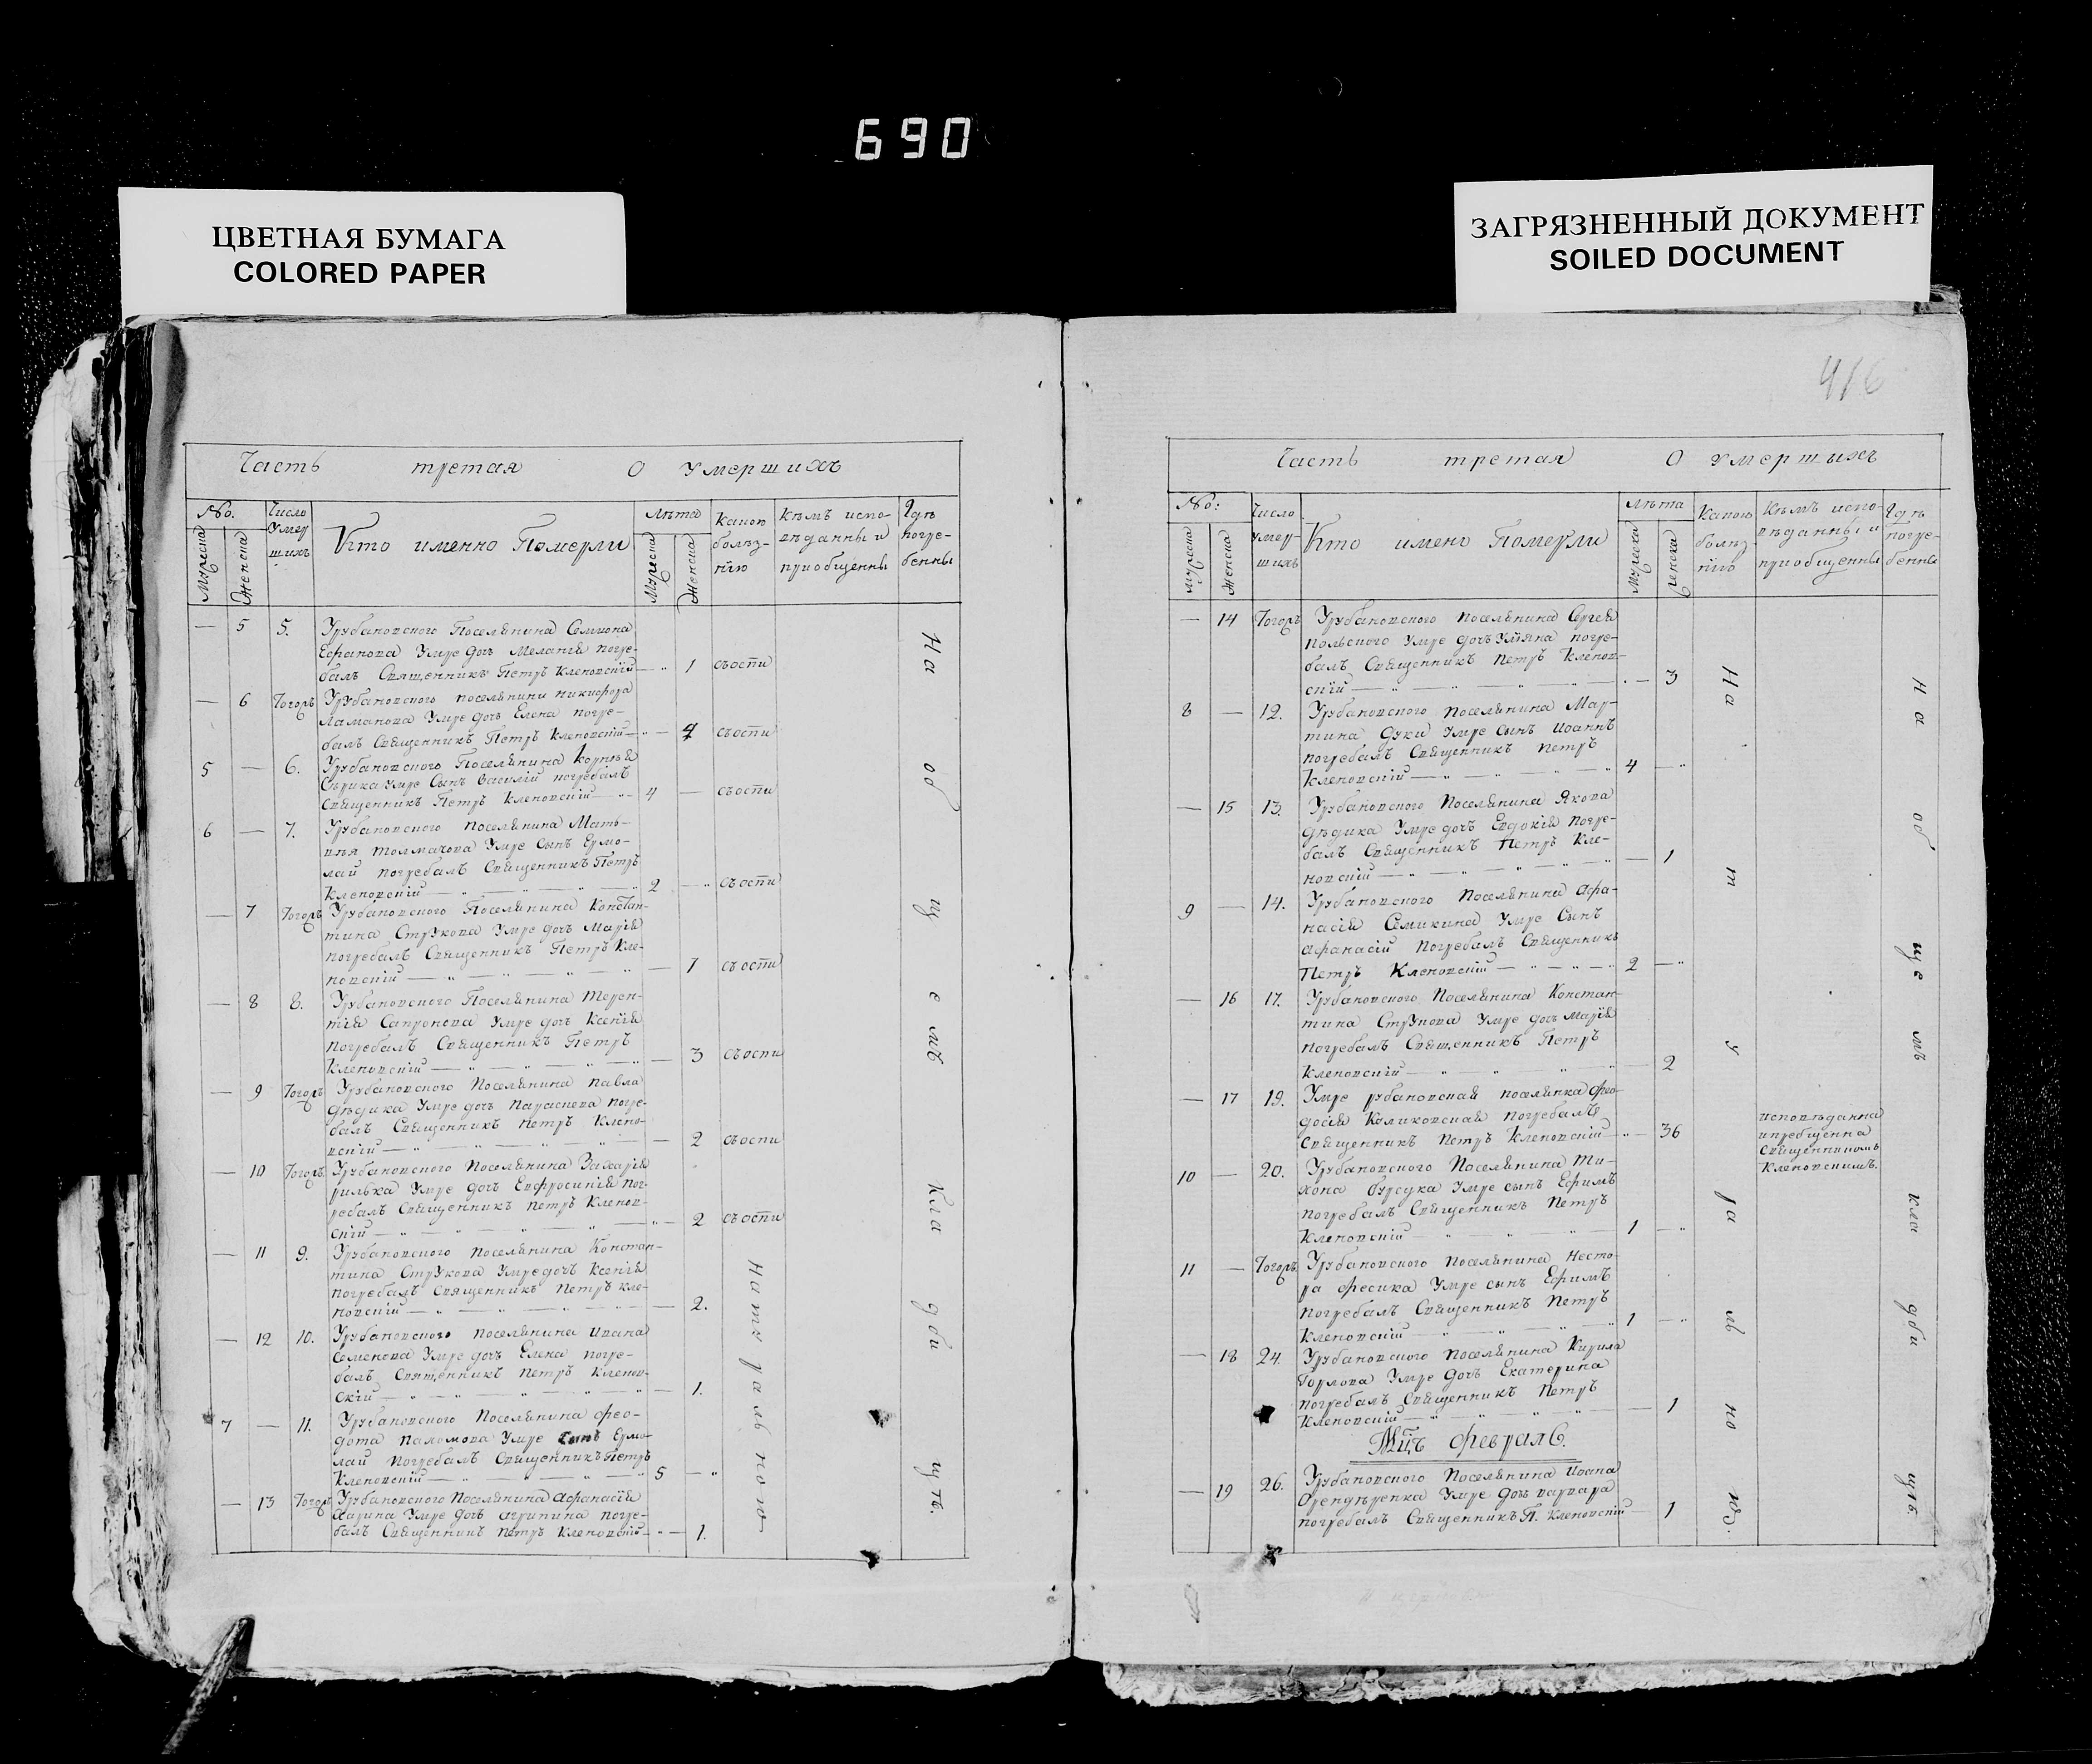 690
ЦВЕТНАЯ БУМАГА
COLORED PAPER
ЗАГРЯЗНЕННЫЙ ДОКУМЕНТ
SOILED DOCUMENT
Часть третая О умершихъ
No. Число умершихъ Кто именно Померли лѣта Какою болѣзнію Кѣмъ исповѣданны и приобщенны Гдѣ погребенны
Мужеска Женска Мужеска Женска
— 5 5. Урубановского Поселянина Семиона
Ефанова Умре дочь Меланія погре-
балъ Священникъ Петръ Кленовскій — " 1 съоспи
— 6 Тогожъ Урубановского поселянина никифора
Ламанова Умре дочь Елена погре-
балъ Священникъ Петръ Кленовскій — " — 4 съоспи
5 — 6. Урубановского Поселянина Корнѣя
Сѣрика Умре Сынъ Василій погребалъ
Священникъ Петръ Кленовскій — " 4 — съоспи
6 — 7. Урубановского поселянина Мать-
вѣя толмахова Умре Сынъ Ермо-
лай погребалъ Священникъ Петръ
Кленовскій — " — " — " — 2 — " съоспи
— 7 Тогожъ Урубановского Поселянина Констан-
тина Струкова Умре дочь Марія
погребалъ Священникъ Петръ Кле-
новскій — " — " — " — " — 1 съоспи
— 8 8. Урубановского Поселянина Терен-
тія Сапронова Умре дочь Ксенія
погребалъ Священникъ Петръ
Кленовскій — " — " — " — 3 съоспи
— 9 Тогожъ Урубановского Поселянина павла
дѣдика Умре дочь Параскева погре-
балъ Священникъ петръ Клено-
вскій — " — " — " — 2 съоспи
— 10 Тогожъ Урубановского поселянина Захарія
рилька Умре дочь Евфросинія пог-
ребалъ Священникъ петръ Кленов-
скій — " — " — " — 2 съоспи
— 11 9. Урубановского Поселянина Констан-
тина Струкова Умре дочь Ксенія
погребалъ Священникъ Петръ кле-
новскій — " — " — " — 2.
— 12 10. Урубановского поселянина ивана
Семенова Умре дочь Елена погре-
балъ Священникъ петръ Кленов-
скій — " — " — " — 1.
7 — 11. Урубановского Поселянина фео-
дота пахомова Умре Сынъ Ермо-
лай погребалъ Священникъ Петръ
Кленовскій — " — " — " 5 — "
— 13 Тогожъ Урубановского Поселянина афанасія
Умре дочь агрипина погре-
балъ Священникъ петръ Кленовскій — " — 1.
Натуральною
На общемъ кладбищѣ.
416
Часть третая О умершыхъ
No: Число умершихъ Кто имено Померли лѣта Какою болѣзнію Кѣмъ исповѣданны и приобщенны Гдѣ погребенны
Мужеска Женска Мужеска Женска
— 14 Тогожъ Урубановского поселянина Сергея
польского Умре дочь Уліяна погре-
балъ Священникъ петръ Кленов-
скій — " — " — " — 3
8 — 12. Урубановского поселянина Мар-
тина дуки Умре Сынъ Иоаннъ
погребалъ Священникъ петръ
Кленовскій — " — " — " 4 — "
— 15 13. Урубановского Поселянина Якова
дѣдика Умре дочь Евдокія погре-
балъ Священникъ Петръ Кле-
новскій — " — " — " — 1
9 — 14. Урубановского Поселянина афа-
насія Семикина Умре Сынъ
афанасій Погребалъ Священникъ
Петръ Кленовскій — " — " — 2 — "
— 16 17. Урубановского Поселянина Констан-
тина Струкова Умре дочь Марія
погребалъ Священникъ Петръ
Кленовскій — " — " — " — 2
— 17 19. Умре рубановская поселянка фео-
досія Коликовская погребалъ
Священникъ Петръ Кленовскій — " — 36 исповѣданна
и приобщенна
Священникомъ
Кленовскимъ.
10 — 20. Урубановского Поселянина Ти-
хона бурсука Умре сынъ Ефимъ
погребалъ Священникъ Петръ
Кленовскій — " — " — " 1 — "
11 — Тогожъ Урубановского поселянина Несто-
ра фесика Умре сынъ Ефимъ
погребалъ Священникъ петръ
Кленовскій — " — " — " 1 — "
— 18 24. Урубановского Поселянина Кирила
Горлова Умре дочь Екатерина
погребалъ Священникъ Петръ
Кленовскій — " — " — " — 1
Мцъ февралЬ.
— 19 26. Урубановского Поселянина Иоана
Умре дочь варвара
погребалъ Священникъ П. Кленовскій — 1
Натуральною.
На общемъ кладбищѣ.